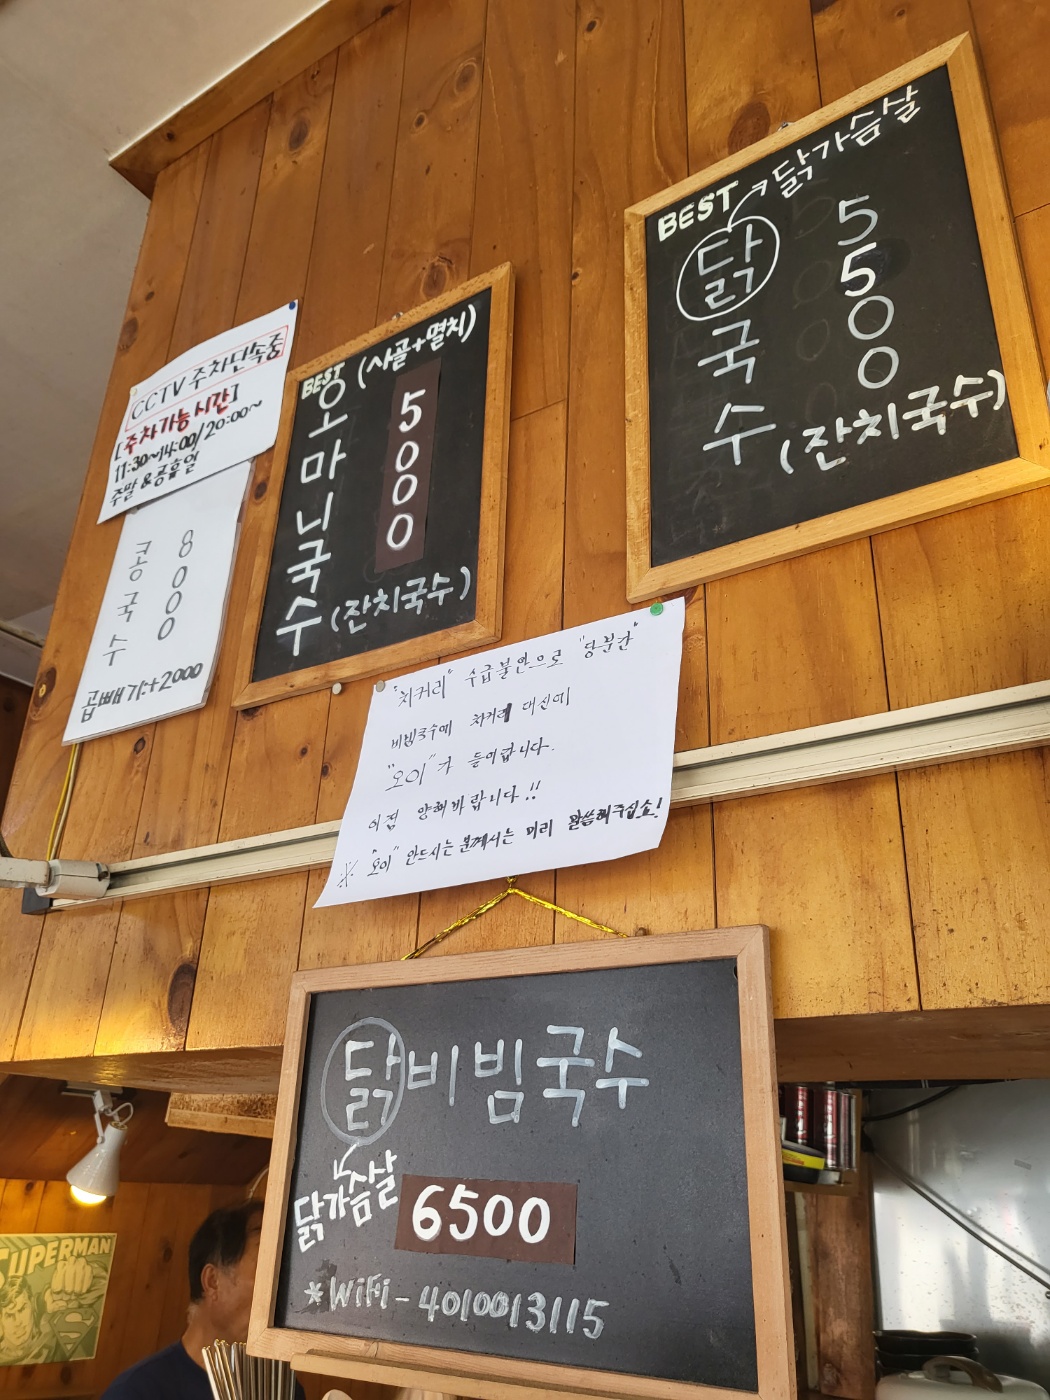 CCTV 주차단속중
[주차가능시간]
11:30~14:00/20:00~
주말&공휴일
콩국수 8000
곱빼기+2000
BEST (사골+멸치)
오마니국수 5000
(잔치국수)
BEST → 닭가슴살
닭국수 5500
(잔치국수)
"치커리" 수급불안으로 "당분간"
비빔국수에 치커리 대신에
"오이"가 들어갑니다.
이점 양해바랍니다!!
※ "오이" 안드시는분께서는 미리 말씀해주십쇼!
닭비빔국수
닭가슴살
6500
*WiFi-4010013115
SUPERMAN